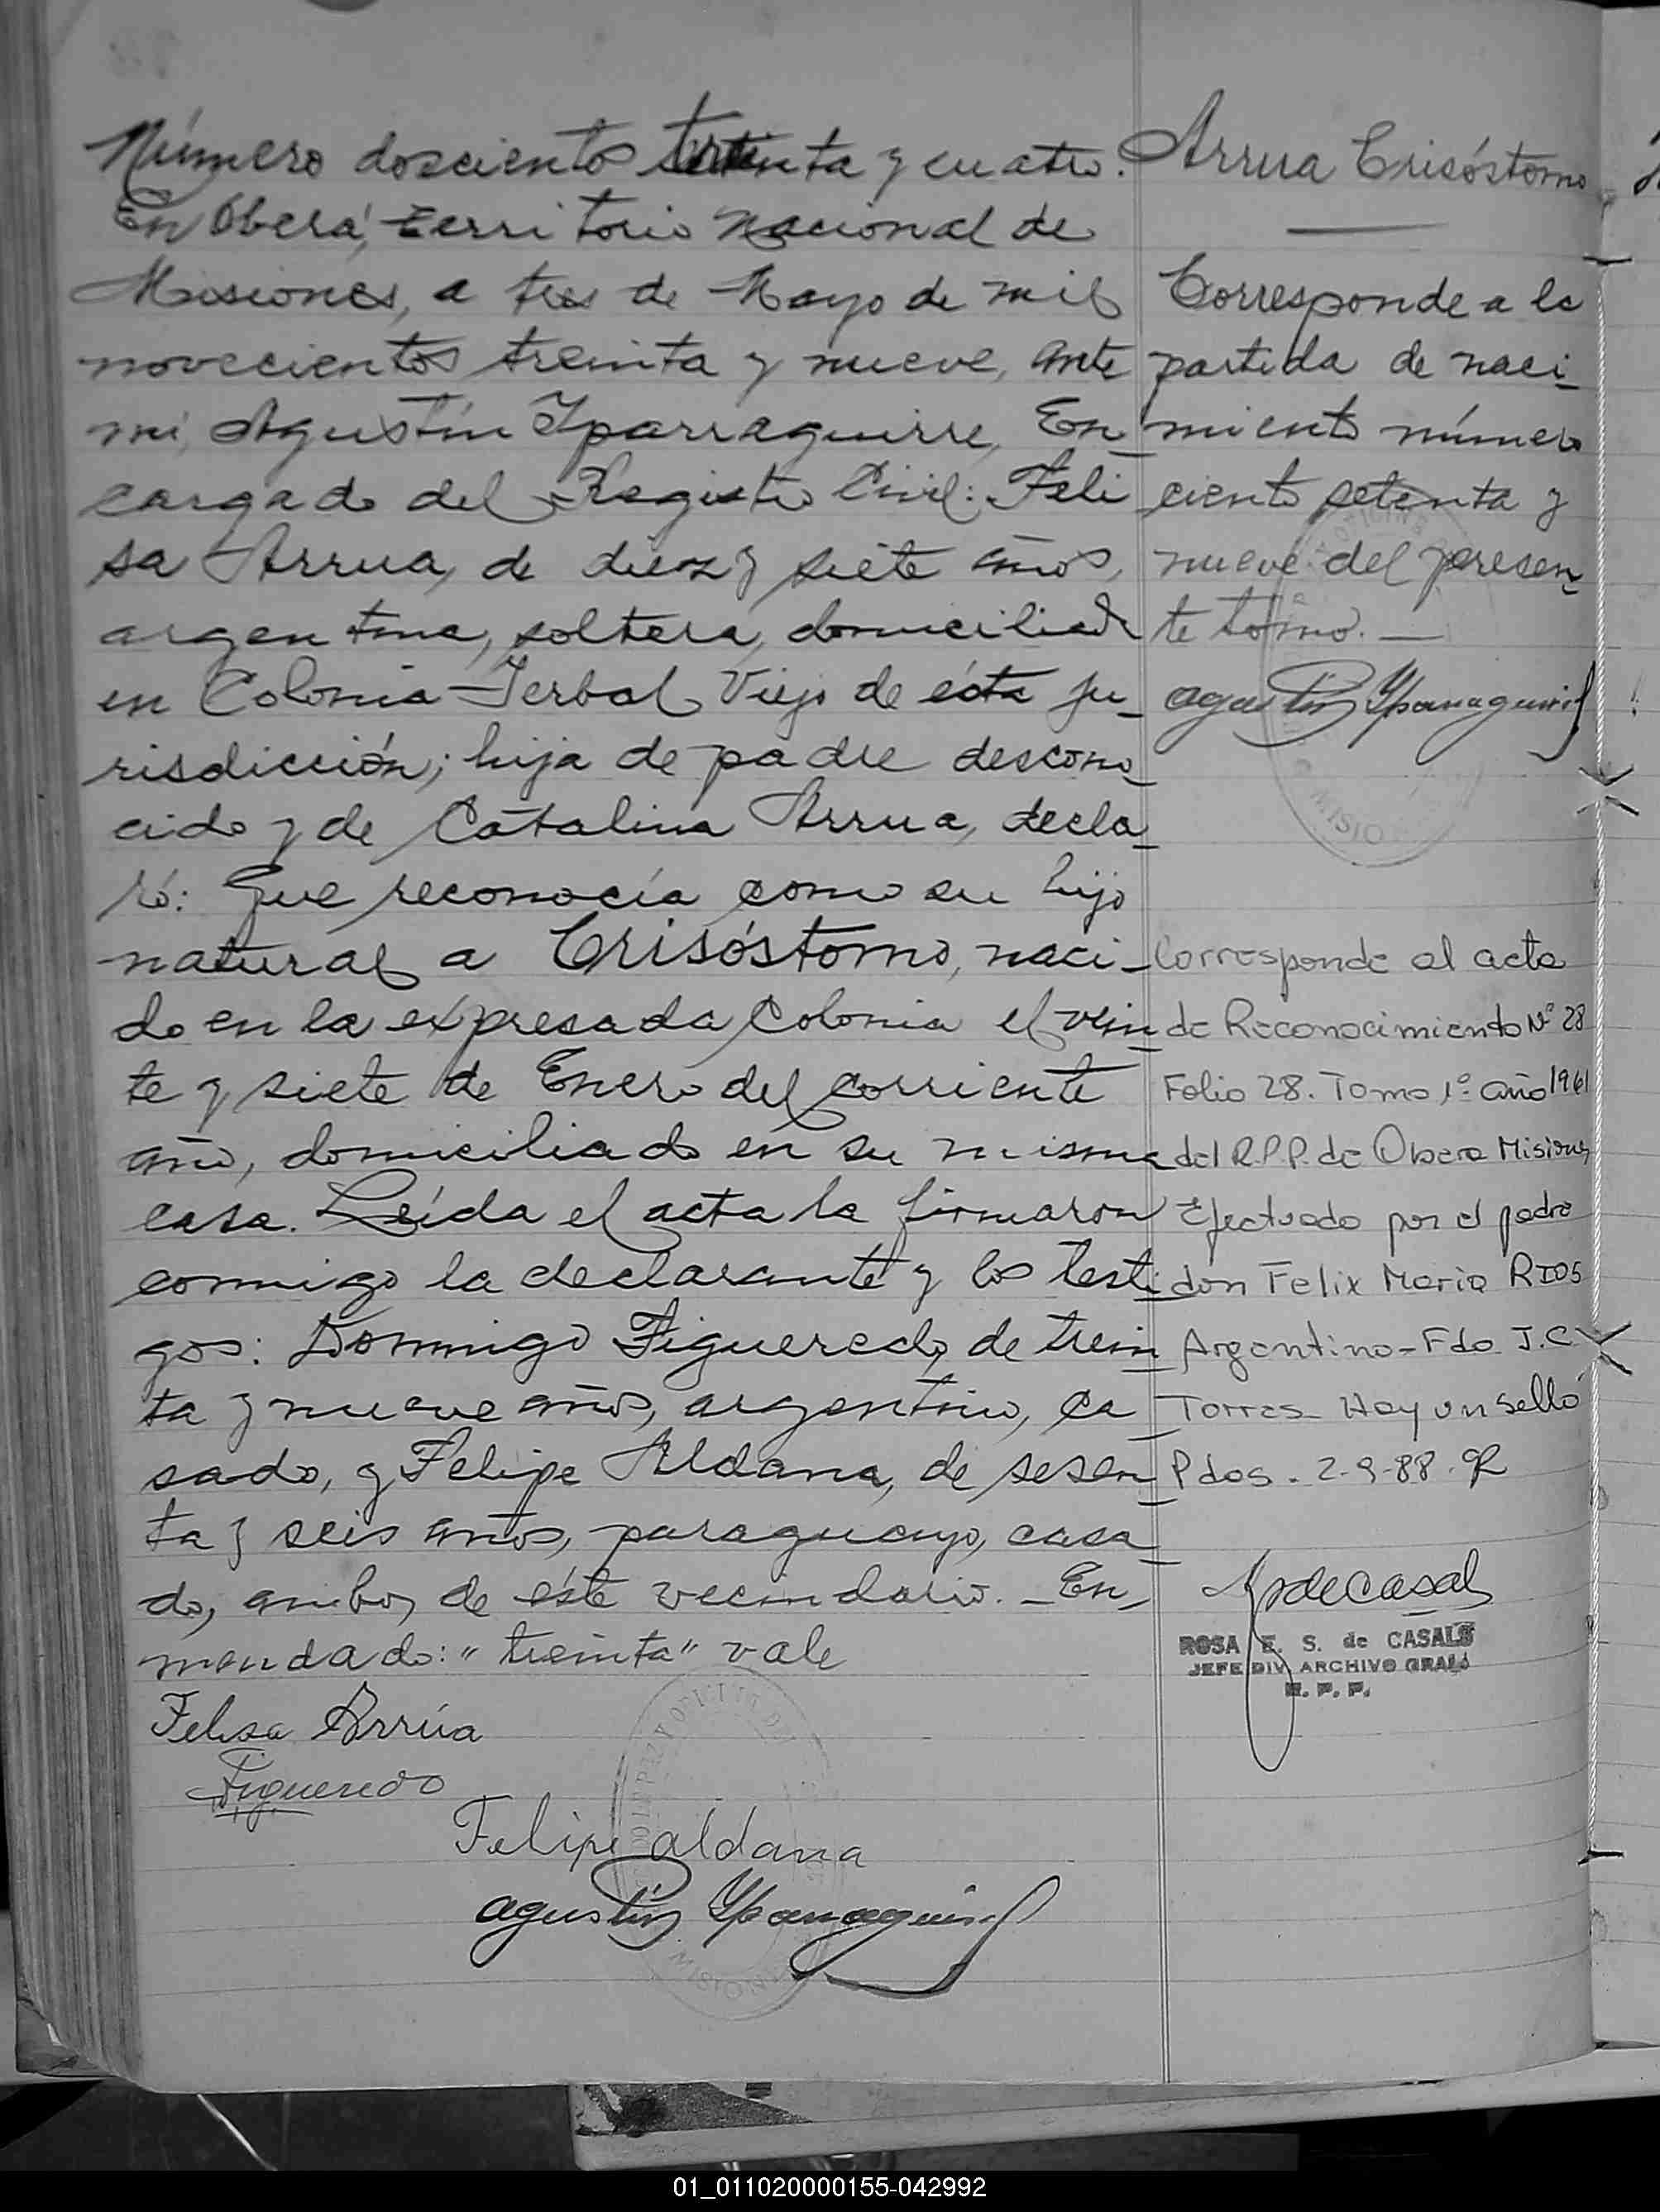 Número doscientos treinta y cuatro.
En Oberá, Territorio Nacional de
Misiones, a tres de Mayo de mil
novecientos treinta y nueve, ante
mi, Agustín Yparraguirre, En-
cargado del Registro Civil: Feli
sa Arrua, de diez y siete años,
argentina, soltera, domiciliada
en Colonia Yerbal Viejo de ésta ju-
risdicción; hija de padre descono-
cido y de Catalina Arrua, decla-
ró: Que reconocía como su hijo
natural a Crisóstomo, naci-
do en la expresada Colonia el vein-
te y siete de Enero del corriente
año, domiciliado en su misma
casa. Leída el acta la firmaron
conmigo la declarante y los testi-
gos: Domingo Figueredo, de trein-
ta y nueve años, argentino, ca-
sado, y Felipe Aldana, de sesen-
ta y seis años, paraguayo, casa-
do, ambos de éste vecindario. - En-
mendado: "treinta" vale
Felisa Arrúa
Figueredo
Felipe aldana
agustín Yparraguirre
Arrua Crisóstomo
Corresponde a la
partida de naci-
miento número
ciento setenta y
nueve del presen-
te tomo. -
agustín Yparraguirre
MISIO
Corresponde al acta
de Reconocimiento Nº 28
Folio 28. Tomo 1º año 1961
del R.P.P. de Obera Misiones
Efectuado por el padre
don Felix Maria RIOS
Argentino - Fdo J.C.
Torres - Hay un sello
Pdos. 2-9-88.
RdeCasals
ROSA E. S. de CASALS
JEFE DIV. ARCHIVO GRAL.
R. P. P.
MISIONES
01_011020000155-042992